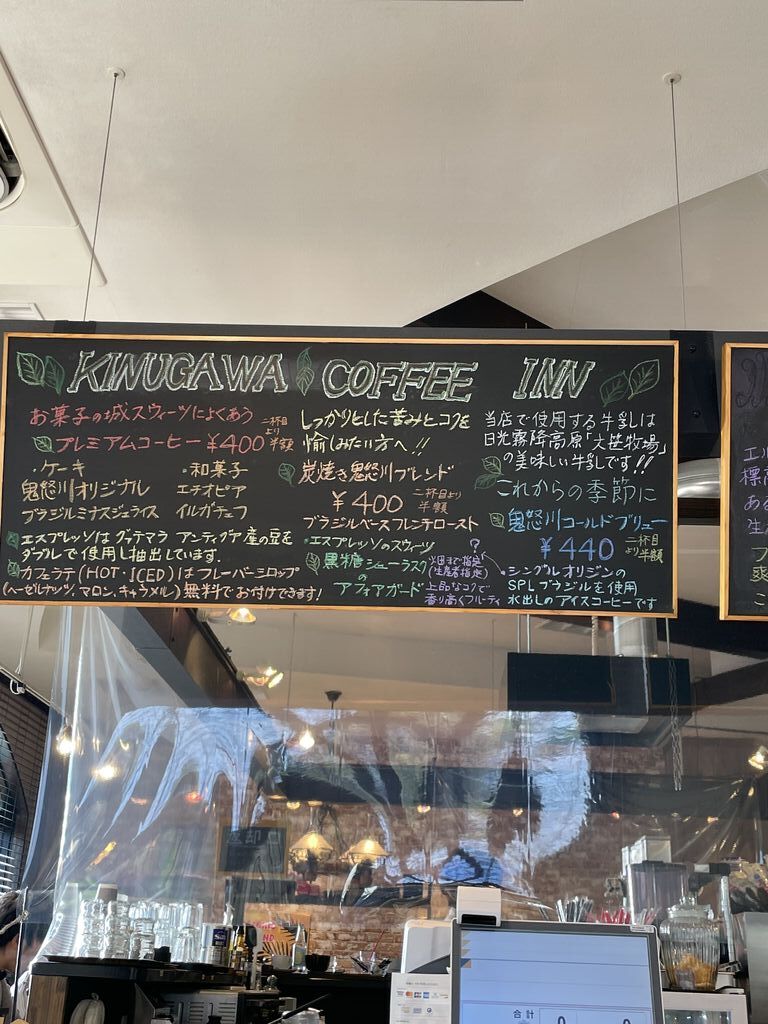 KINUGAWA COFFEE INN
お菓子の城スウィーツによくあう
プレミアムコーヒー ¥400 二杯目より半額
・ケーキ
鬼怒川オリジナル
ブラジルミナスジェライス
・和菓子
エチオピア
イルガチェフ
エスプレッソはグァテマラ アンティグア産の豆を
ダブルで使用し抽出しています.
カフェラテ(HOT・ICED)はフレーバーシロップ
(ヘーゼルナッツ、マロン、キャラメル)無料でお付けできます!
しっかりとした苦みとコクを
愉しみたい方へ!!
炭焼き鬼怒川ブレンド
¥400 二杯目より半額
ブラジルベースフレンチロースト
・エスプレッソのスウィーツ
黒糖シューラスク
アフォガード
(生産者指定)
上品なコクで
香り高くフルーティ
当店で使用する牛乳は
日光霧降高原「大笹牧場」
の美味しい牛乳です!!
これからの季節に
鬼怒川コールドブリュー
¥440 二杯目より半額
・シングルオリジンの
SPLブラジルを使用
水出しのアイスコーヒーです
返却口
合計
0
0